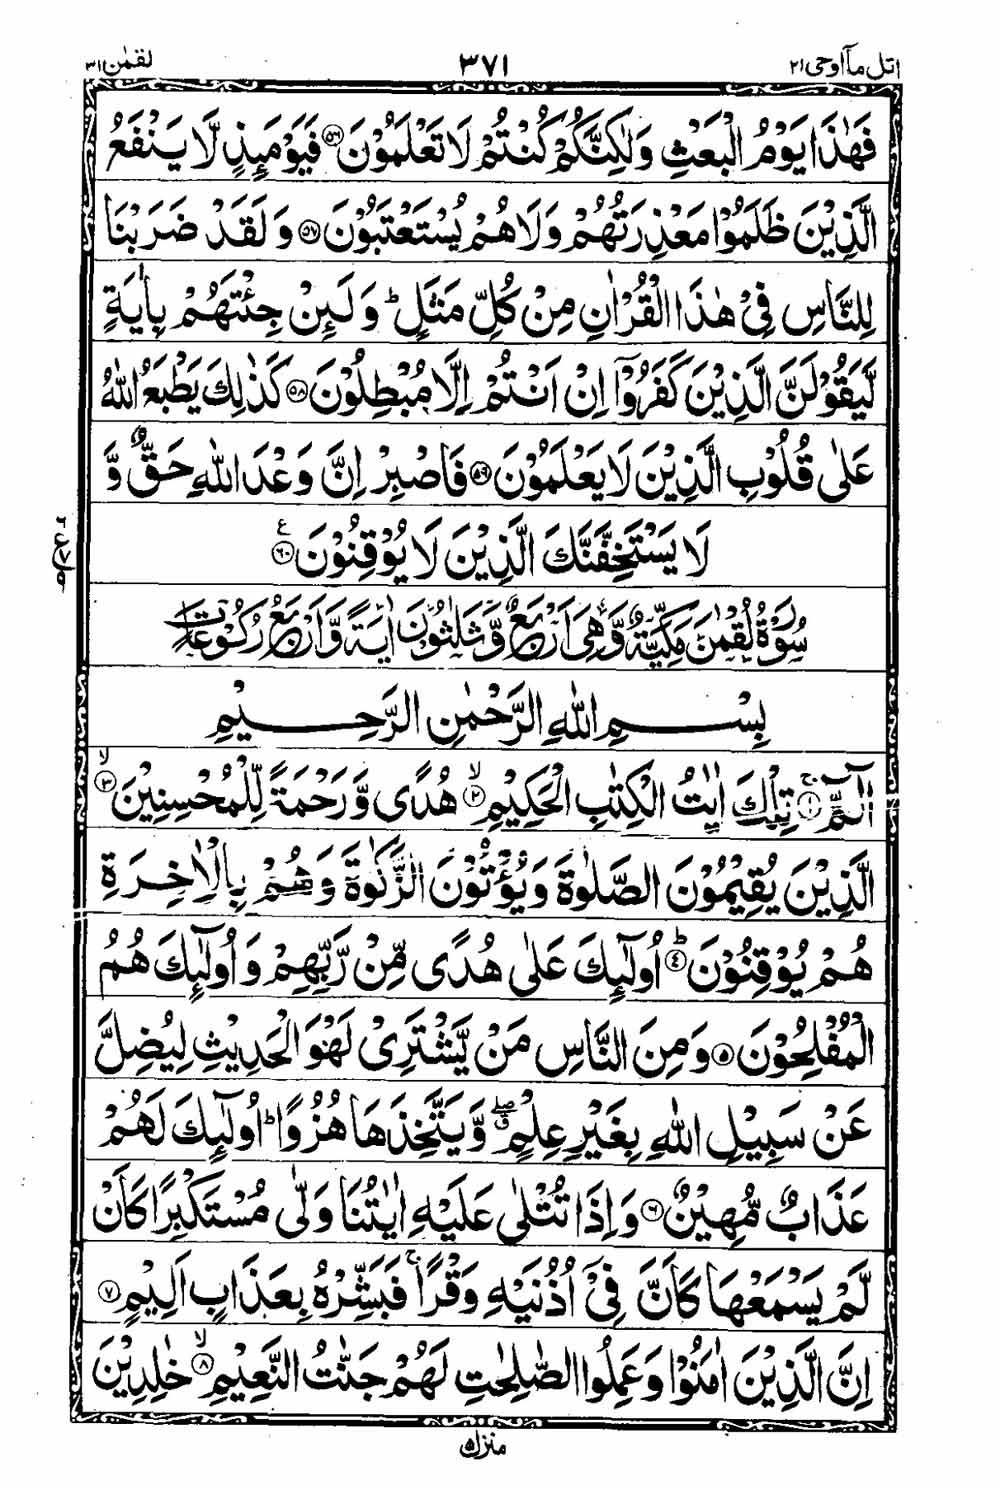 اتل مآ اوحی ۲۱ ۳۷۱ لقمٰن ۳۱
فَهٰذَا يَوْمُ الْبَعْثِ وَلٰكِنَّكُمْ كُنْتُمْ لَا تَعْلَمُوْنَ ۝۵۶ فَيَوْمَئِذٍ لَّا يَنْفَعُ
الَّذِيْنَ ظَلَمُوْا مَعْذِرَتُهُمْ وَلَا هُمْ يُسْتَعْتَبُوْنَ ۝۵۷ وَلَقَدْ ضَرَبْنَا
لِلنَّاسِ فِيْ هٰذَا الْقُرْاٰنِ مِنْ كُلِّ مَثَلٍ ؕ وَلَئِنْ جِئْتَهُمْ بِاٰيَةٍ
لَّيَقُوْلَنَّ الَّذِيْنَ كَفَرُوْۤا اِنْ اَنْتُمْ اِلَّا مُبْطِلُوْنَ ۝۵۸ كَذٰلِكَ يَطْبَعُ اللّٰهُ
عَلٰى قُلُوْبِ الَّذِيْنَ لَا يَعْلَمُوْنَ ۝۵۹ فَاصْبِرْ اِنَّ وَعْدَ اللّٰهِ حَقٌّ وَّ
لَا يَسْتَخِفَّنَّكَ الَّذِيْنَ لَا يُوْقِنُوْنَ ۝۶۰ ع
سُوْرَةُ لُقْمٰنَ مَكِّيَّةٌ وَّهِيَ اَرْبَعٌ وَّثَلٰثُوْنَ اٰيَةً وَّاَرْبَعُ رُكُوْعَاتٍ
بِسْمِ اللّٰهِ الرَّحْمٰنِ الرَّحِيْمِ
الٓمّٓ ۝۱ۚ تِلْكَ اٰيٰتُ الْكِتٰبِ الْحَكِيْمِ ۝۲ۙ هُدًى وَّرَحْمَةً لِّلْمُحْسِنِيْنَ ۝۳ۙ
الَّذِيْنَ يُقِيْمُوْنَ الصَّلٰوةَ وَيُؤْتُوْنَ الزَّكٰوةَ وَهُمْ بِالْاٰخِرَةِ
هُمْ يُوْقِنُوْنَ ۝۴ؕ اُولٰٓئِكَ عَلٰى هُدًى مِّنْ رَّبِّهِمْ وَاُولٰٓئِكَ هُمُ
الْمُفْلِحُوْنَ ۝۵ وَمِنَ النَّاسِ مَنْ يَّشْتَرِيْ لَهْوَ الْحَدِيْثِ لِيُضِلَّ
عَنْ سَبِيْلِ اللّٰهِ بِغَيْرِ عِلْمٍ ۖ وَّيَتَّخِذَهَا هُزُوًا ؕ اُولٰٓئِكَ لَهُمْ
عَذَابٌ مُّهِيْنٌ ۝۶ وَاِذَا تُتْلٰى عَلَيْهِ اٰيٰتُنَا وَلّٰى مُسْتَكْبِرًا كَاَنْ
لَّمْ يَسْمَعْهَا كَاَنَّ فِيْۤ اُذُنَيْهِ وَقْرًا ۚ فَبَشِّرْهُ بِعَذَابٍ اَلِيْمٍ ۝۷
اِنَّ الَّذِيْنَ اٰمَنُوْا وَعَمِلُوا الصّٰلِحٰتِ لَهُمْ جَنّٰتُ النَّعِيْمِ ۝۸ۙ خٰلِدِيْنَ
منزل ۵